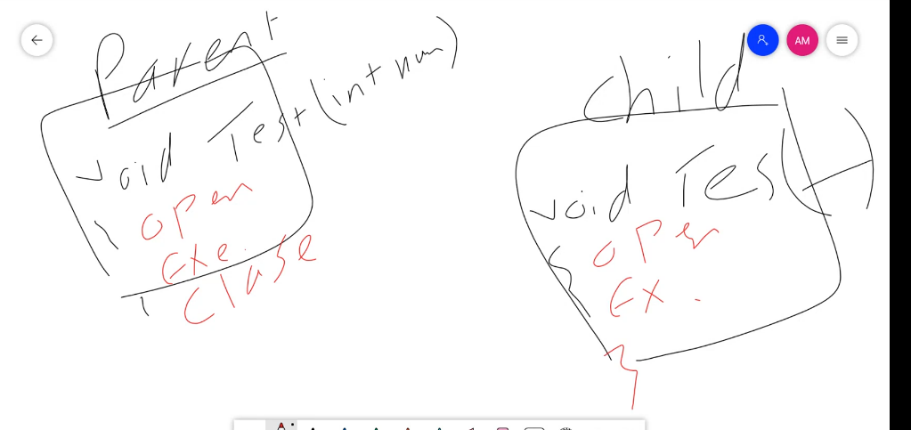 Parent
void Test(int num)
{ open
Exe.
Close
}
Child
void Test(-)
{ open
Ex.
}
AM